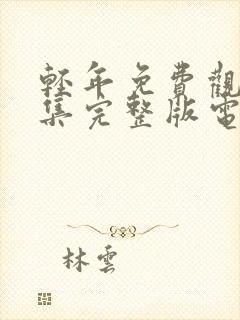 輕年免費觀
集完整版電
林雲